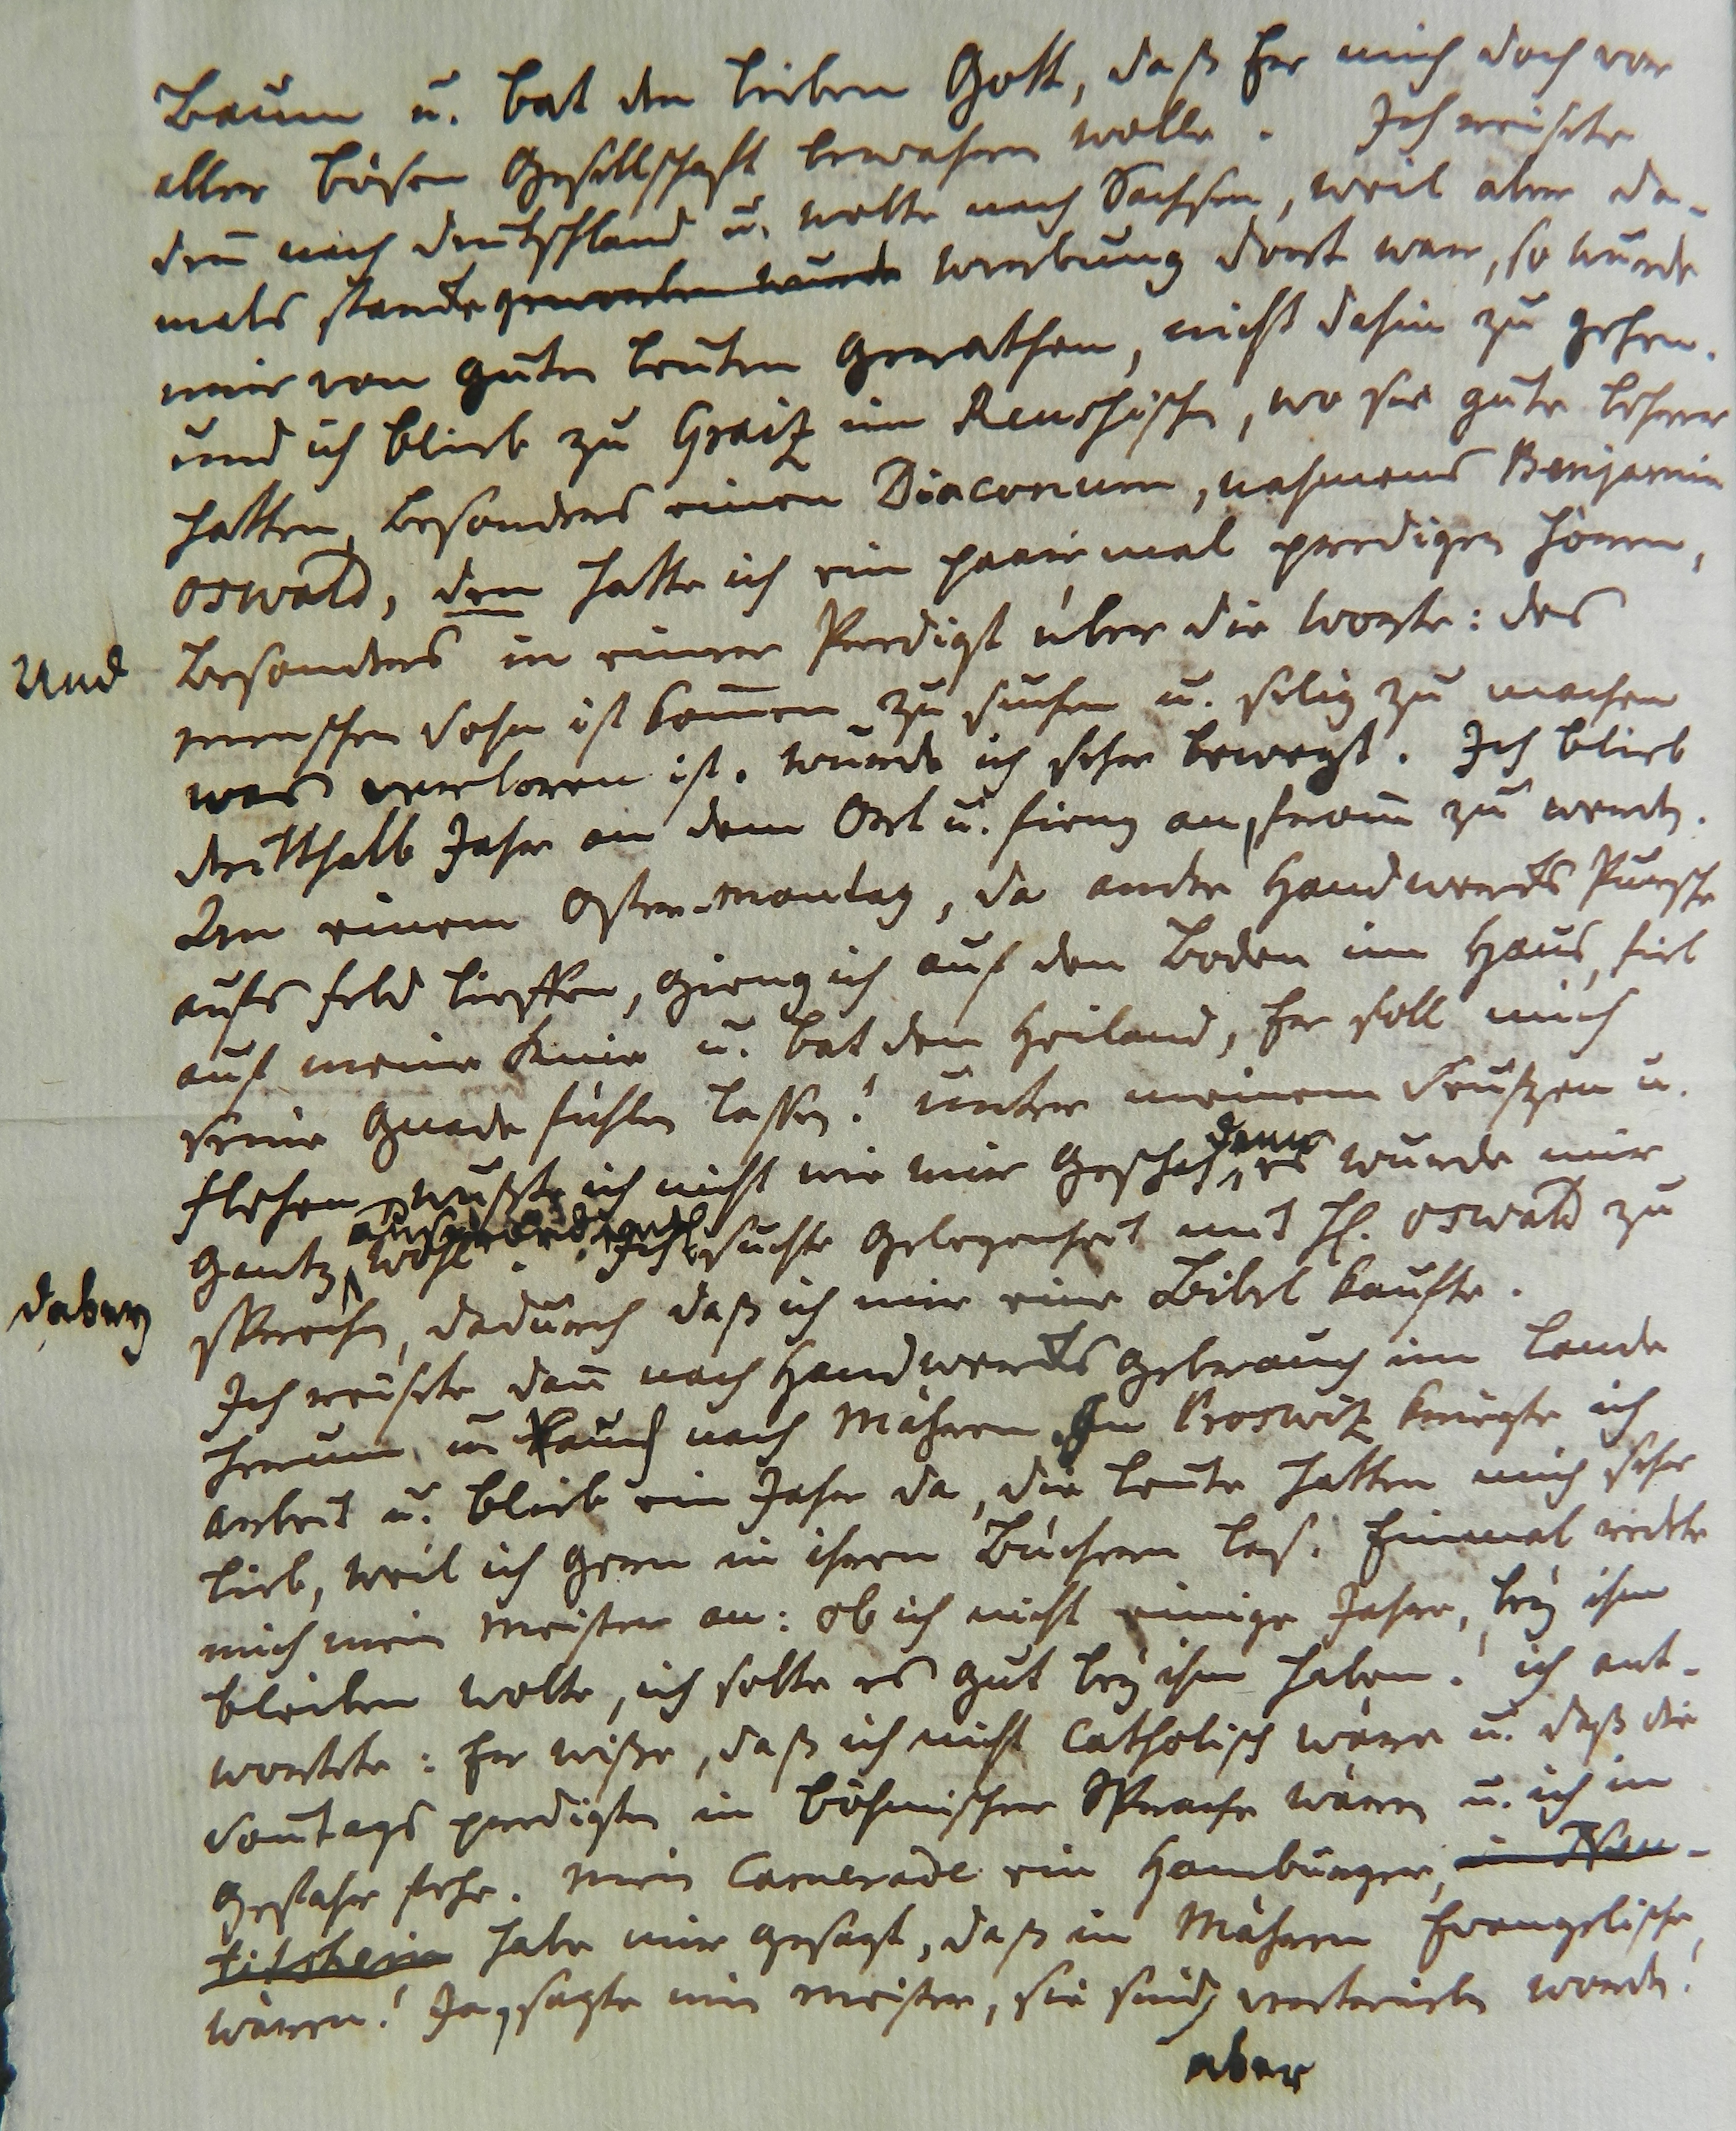 Baum u. bat den lieben Gott, daß Er mich doch vor
aller bösen Gesellschaft bewahren wolle. Ich reiste
den̄ nach Deutschland u. wolte nach Sachsen, weil aber da-
mals starcke geworben wurde Werbung dort war, so wurde
mir von guten Leuten gerathen, nicht dahin zu gehen.
und ich blieb zu Graitz im Reushischen, wo sie gute Lehrer
hatten, besonders einen Diaconum, nahmens Benjamin
Oswald, den hatte ich ein paarmal predigen hören,
Und besonders in einer Predigt über die Worte: des
menschen Sohn ist kom̄en zu suchen u. selig zu machen
was verloren ist. wurde ich sehr bewegt. Ich blieb
dritthalb Jahr an dem Ort u. fieng an, from̄ zu werden.
An einem Oster-Montag, da andre Handwercks Pursche
aufs Feld lieffen, gieng ich auf den Boden im Haus, fiel
auf meine Knie u. bat den Heiland, Er soll mich
seine Gnade fühlen lassen! unter meinem Seufzen u.
flehen wußte ich nicht wie mir geschah, denn es wurde mir
gantz ausserordentlich wohl. Ich suchte Gelegenheit mit H. Oswald zu
dabey sprechen, dadurch daß ich mir eine Bibel kaufte.
Ich reiste dan̄ nach Handwercks Gebrauch im Lande
herum u. kam auch nach Mähren. In Proswitz kriegte ich
Arbeit u. blieb ein Jahr da, die Leute hatten mich sehr
lieb, weil ich gern in ihren Büchern las. Einmal redete
mich mein Meister an: ob ich nicht einige Jahre, bey ihm
bleiben wolte, ich solte es gut bey ihm haben! ich ant-
wortete: Er wisse, daß ich nicht Catholisch wäre u. daß die
Son̄tags predigten in böhmischer Sprache wären u. ich in
Gefahr stehe. Mein Camerade ein Hamburger, in Neu-
titshein habe mir gesagt, daß in Mähren Evangelische,
wären! Ja, sagte mein Meister, sie sind vertrieben worden!
aber